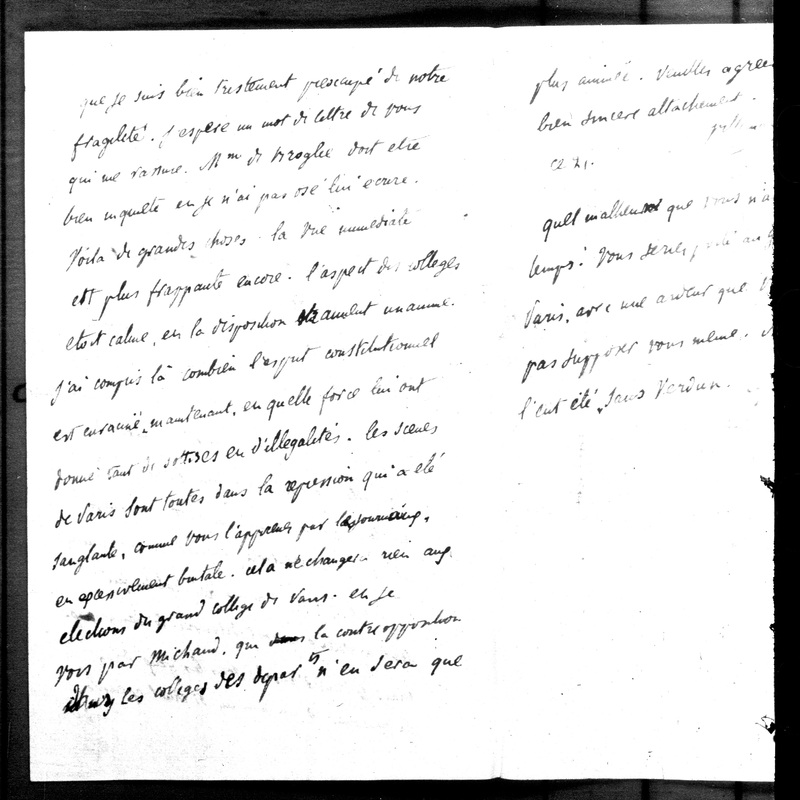 que je suis bien tristement préoccupé de notre
fragilité. j'espère un mot de lettre de vous
qui me rassure. Mme de Broglie doit etre
bien inquiete en je n'ai pas osé lui ecrire.
Voilà de grandes choses. la vue immediate
est plus frappante encore. l'aspect des colleges
etoit calme, en la disposition unanime.
j'ai compris là combien l'esprit constitutionnel
est enraciné, maintenant, en quelle force lui ont
donné tant de sottises en d'illegalités. les scenes
de Paris sont toutes dans la repression qui a été
sanglante, comme vous l'apprenez par les journaux,
en excessivement brutale. cela ne changera rien aux
elections du grand college de Paris. en je
vois par Michaud, que la contre opposition
les colleges des depar ts n'en sera que
plus animée. Veuillez agréer
bien sincere attachement.
ce 21.
quel malheur que vous n'a
temps! Vous seriez porté au
Paris, avec une ardeur que
pas supposer vous même.
l'eut été, sans Verdun.